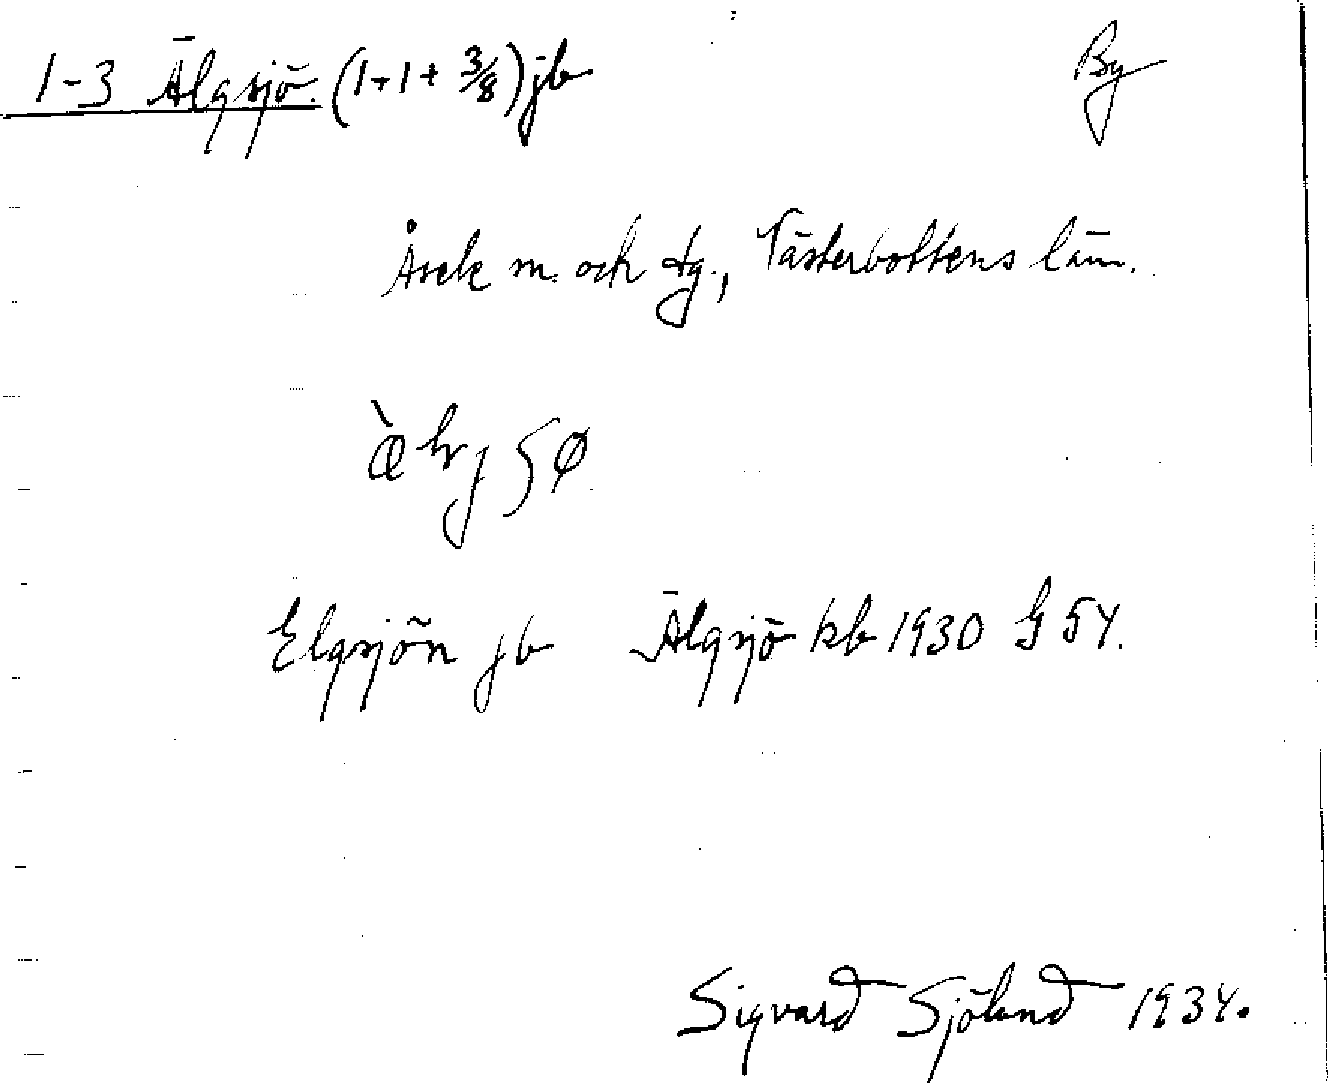 1-3 Älgsjö. (1+1+ 3/8) jb By
Åsele m. och tg., Västerbottens län.
Elgsjön jb Älgsjö kb 1930 G 54.
Sigvard Sjölund 1934.